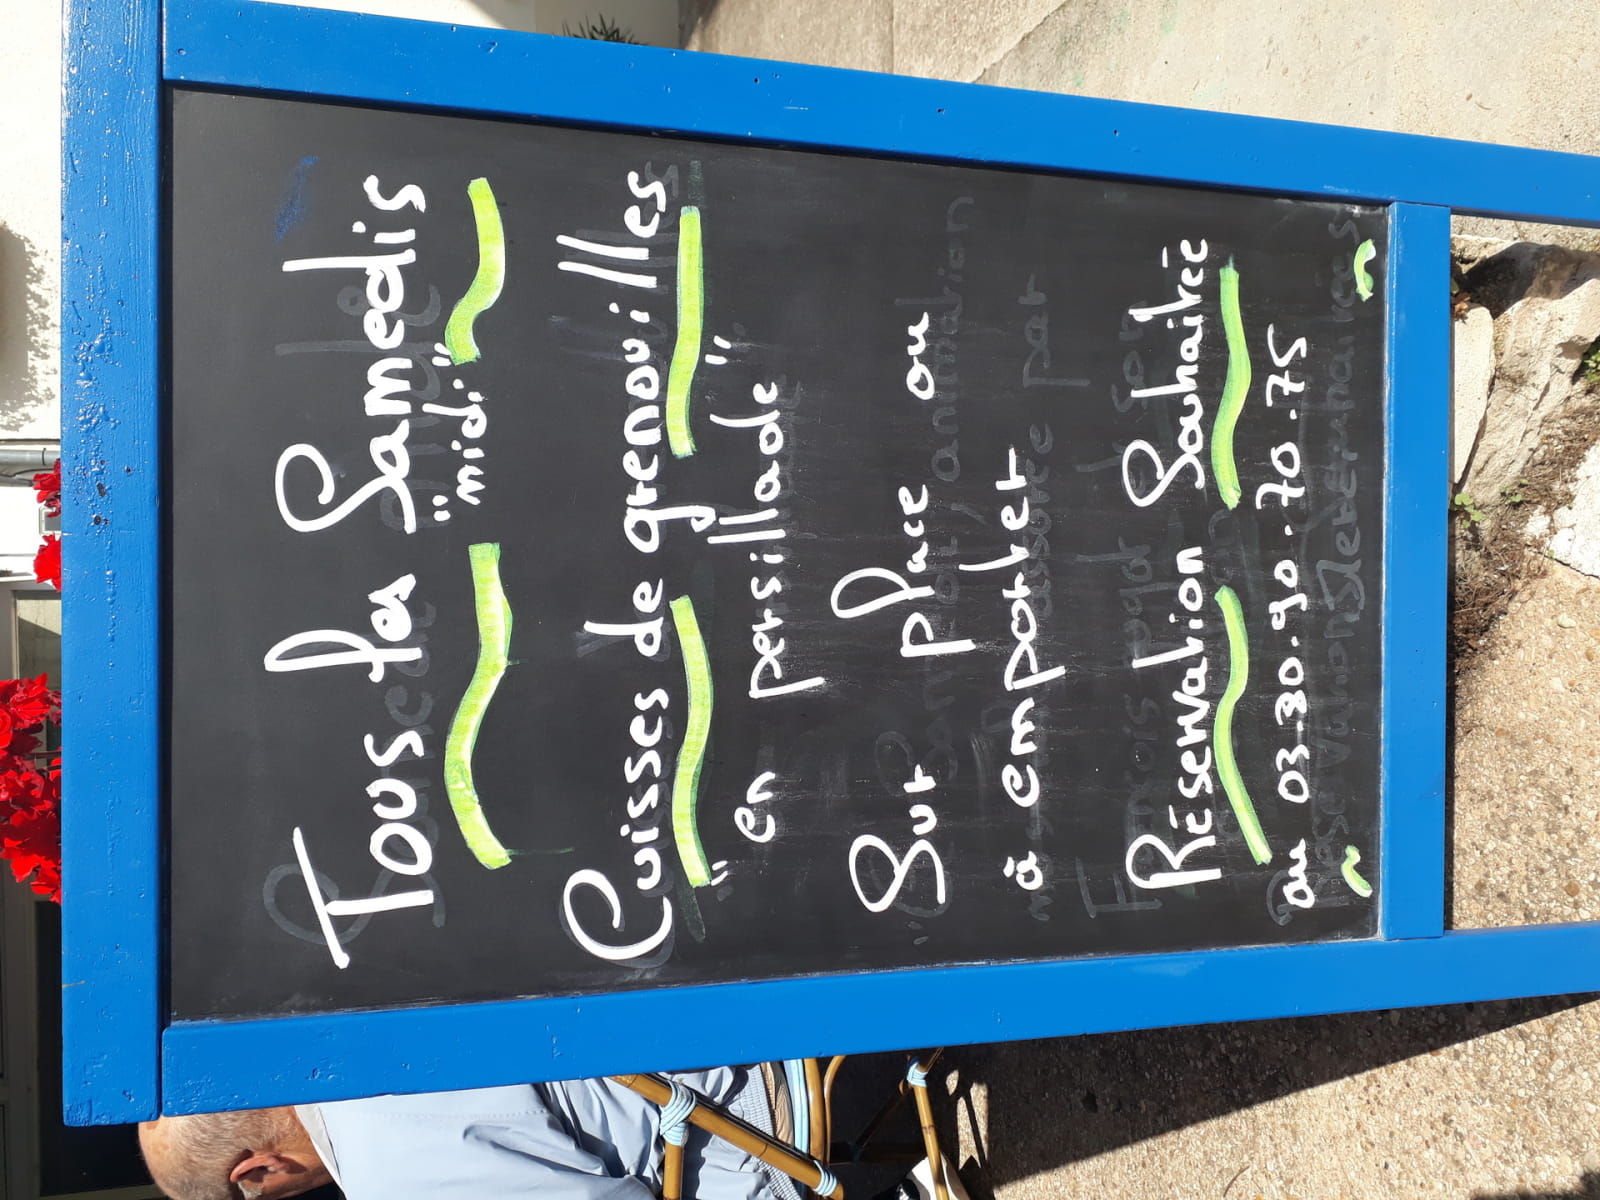 Tous les Samedis
"midi"
Cuisses de grenouilles
"en persillade"
Sur place ou
à emporter
Réservation Souhaitée
au 03.80.90.70.75